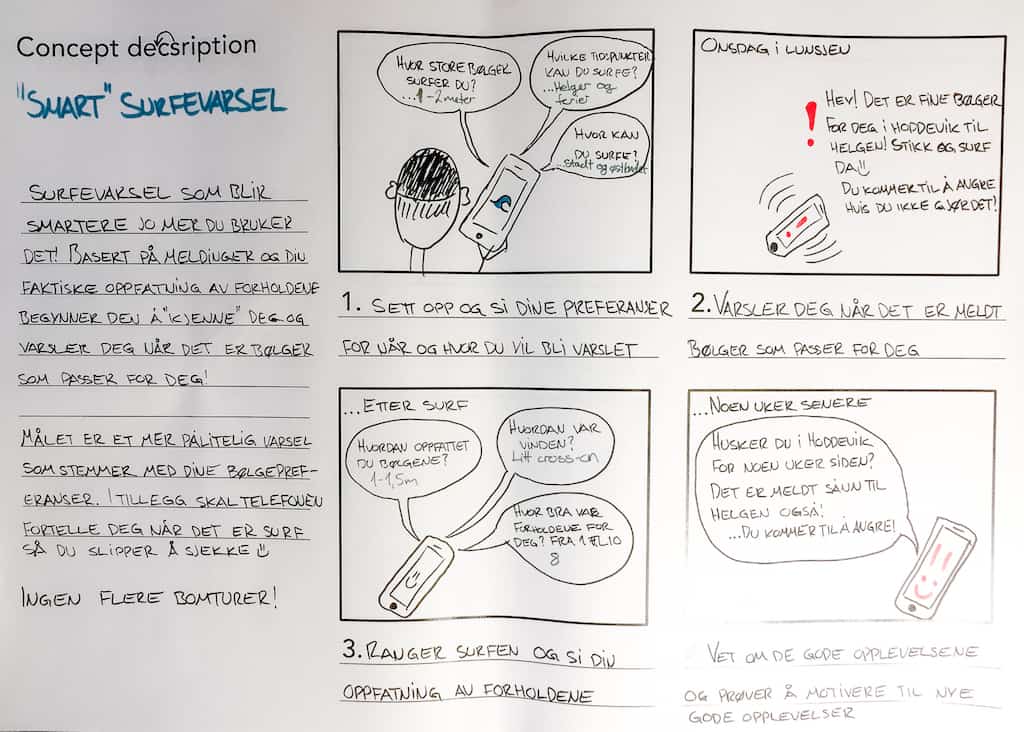 Concept decsription
"SMART" SURFEVARSEL
SURFEVARSEL SOM BLIR
SMARTERE JO MER DU BRUKER
DET! BASERT PÅ MELDINGER OG DIN
FAKTISKE OPPFATNING AV FORHOLDENE
BEGYNNER DEN Å "KJENNE" DEG OG
VARSLER DEG NÅR DET ER BØLGER
SOM PASSER FOR DEG!
MÅLET ER ET MER PÅLITELIG VARSEL
SOM STEMMER MED DINE BØLGEPREF-
ERANSER. I TILLEGG SKAL TELEFONEN
FORTELLE DEG NÅR DET ER SURF
SÅ DU SLIPPER Å SJEKKE
INGEN FLERE BOMTURER!
HVOR STORE BØLGER
SURFER DU?
...1-2meter
HVILKE TIDSPUNKTER
KAN DU SURFE?
...Helger og
ferier
HVOR KAN
DU SURFE?
...stadt og
1. SETT OPP OG SI DINE PREFERANSER
FOR NÅR OG HVOR DU VIL BLI VARSLET
ONSDAG I LUNSJEN
! HEY! DET ER FINE BØLGER
FOR DEG I HODDEVIK TIL
HELGEN! STIKK OG SURF
DA!!
DU KOMMER TIL Å ANGRE
HVIS DU IKKE GJØR DET!
!
2. VARSLER DEG NÅR DET ER MELDT
BØLGER SOM PASSER FOR DEG
...ETTER SURF
HVORDAN OPPFATTET
DU BØLGENE?
1-1,5m
HVORDAN VAR
VINDEN?
Litt cross-on
HVOR BRA VAR
FORHOLDENE FOR
DEG? FRA 1 TIL 10
8
3. RANGER SURFEN OG SI DIN
OPPFATNING AV FORHOLDENE
...NOEN UKER SENERE
HUSKER DU I HODDEVIK
FOR NOEN UKER SIDEN?
DET ER MELDT SÅNN TIL
HELGEN OGSÅ!
...DU KOMMER TIL Å ANGRE!
!!
VET OM DE GODE OPPLEVELSENE
OG PRØVER Å MOTIVERE TIL NYE
GODE OPPLEVELSER